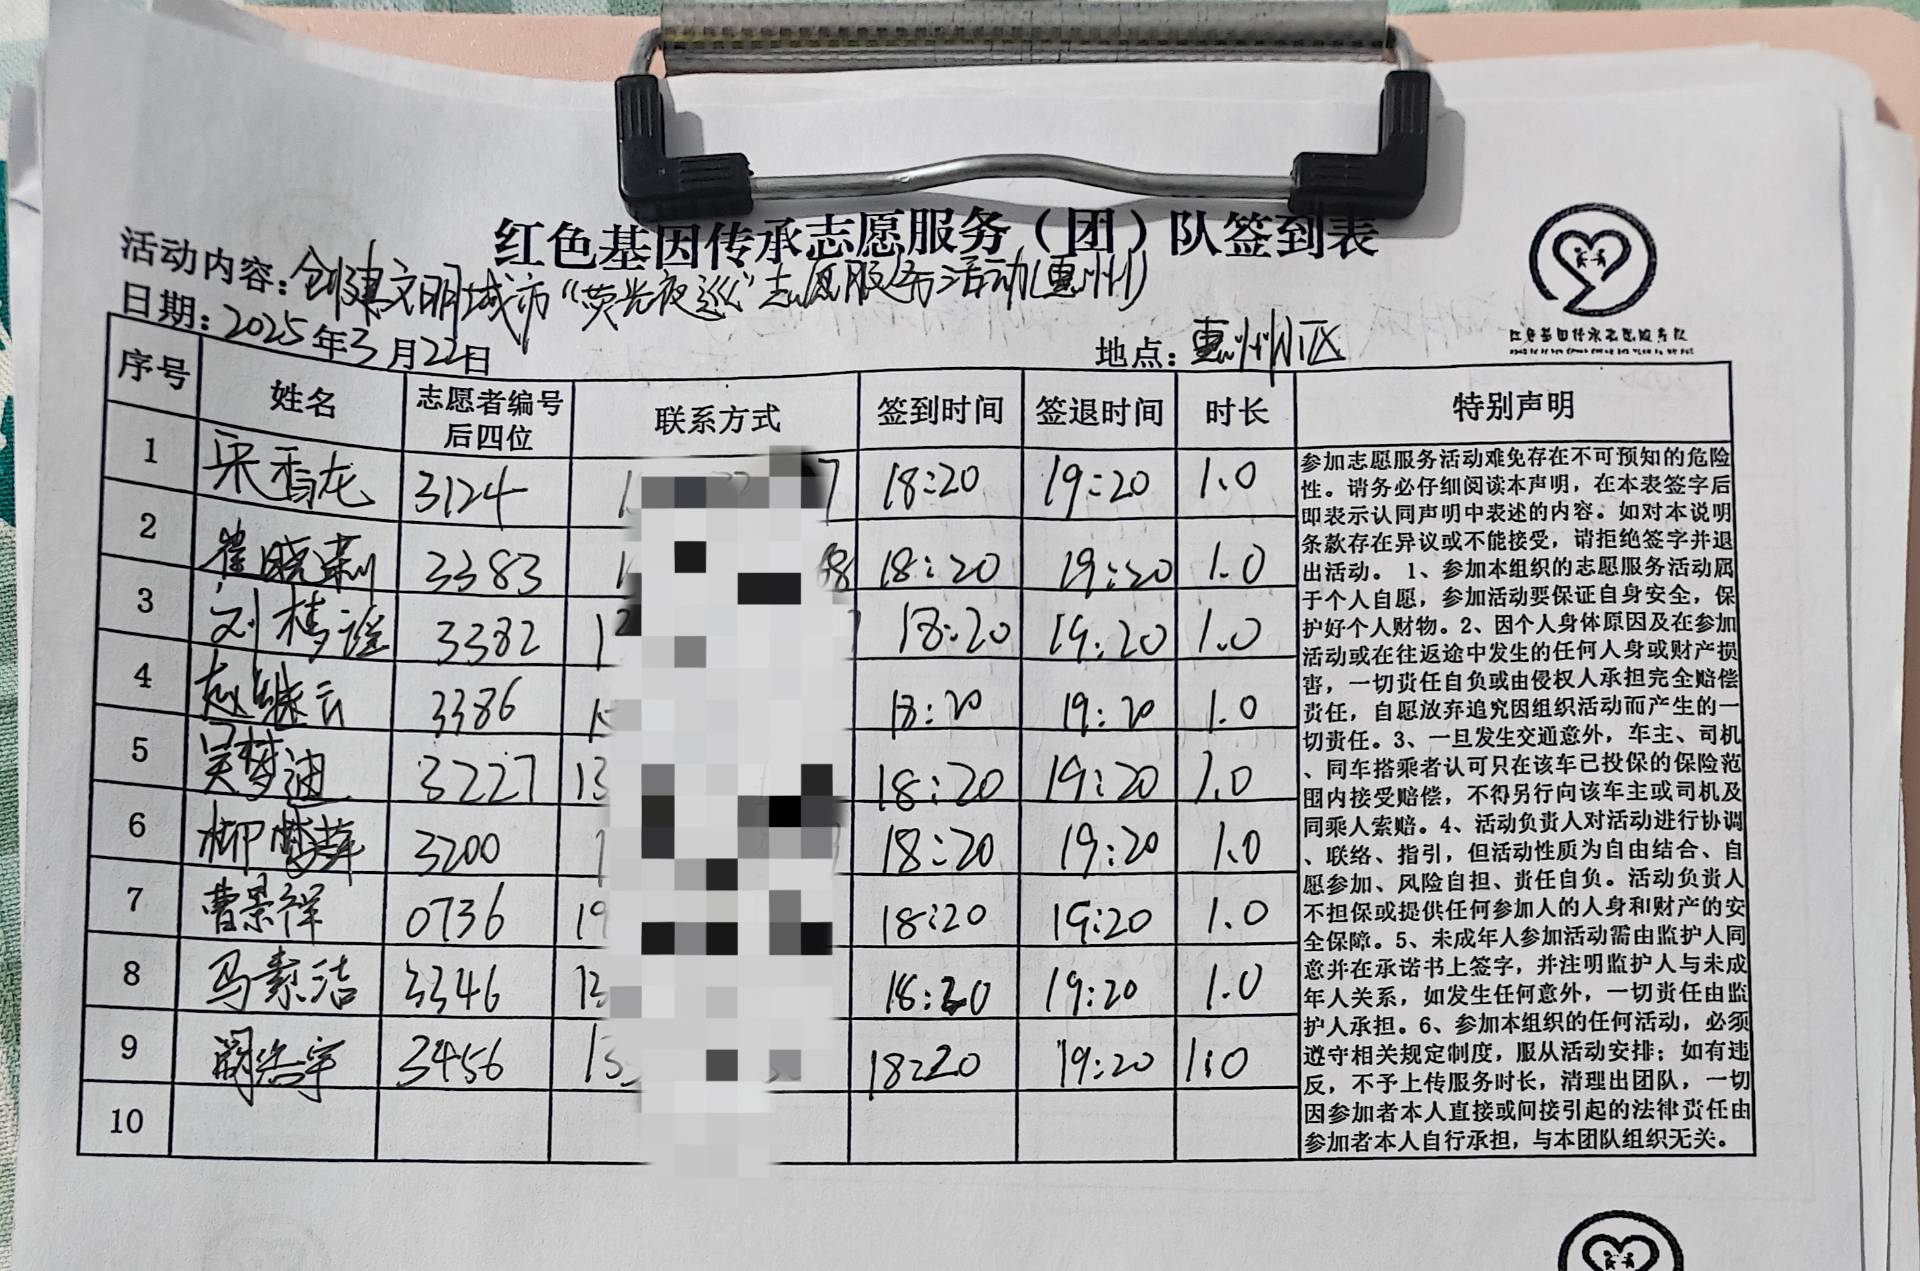 红色基因传承志愿服务（团）队签到表
活动内容：创建文明城市“荧光夜巡”志愿服务活动(惠州)
日期：2025年3月22日
地点：惠州区
序号 姓名 志愿者编号后四位 联系方式 签到时间 签退时间 时长 特别声明
1 宋香龙 3124 18:20 19:20 1.0
2 崔晓莉 3383 18:20 19:20 1.0
3 刘梦谣 3382 18:20 19:20 1.0
4 赵继云 3386 18:20 19:20 1.0
5 吴梦迪 3227 13 18:20 19:20 1.0
6 柳梦萍 3200 18:20 19:20 1.0
7 曹景祥 0736 19 18:20 19:20 1.0
8 马素洁 3346 13 18:20 19:20 1.0
9 3456 13 18:20 19:20 1.0
10
参加志愿服务活动难免存在不可预知的危险
性。请务必仔细阅读本声明，在本表签字后
即表示认同声明中表述的内容。如对本说明
条款存在异议或不能接受，请拒绝签字并退
出活动。 1、参加本组织的志愿服务活动属
于个人自愿，参加活动要保证自身安全，保
护好个人财物。2、因个人身体原因及在参加
活动或在往返途中发生的任何人身或财产损
害，一切责任自负或由侵权人承担完全赔偿
责任，自愿放弃追究因组织活动而产生的一
切责任。3、一旦发生交通意外，车主、司机
、同车搭乘者认可只在该车已投保的保险范
围内接受赔偿，不得另行向该车主或司机及
同乘人索赔。4、活动负责人对活动进行协调
、联络、指引，但活动性质为自由结合、自
愿参加、风险自担、责任自负。活动负责人
不担保或提供任何参加人的人身和财产的安
全保障。5、未成年人参加活动需由监护人同
意并在承诺书上签字，并注明监护人与未成
年人关系，如发生任何意外，一切责任由监
护人承担。6、参加本组织的任何活动，必须
遵守相关规定制度，服从活动安排；如有违
反，不予上传服务时长，清理出团队，一切
因参加者本人直接或间接引起的法律责任由
参加者本人自行承担，与本团队组织无关。